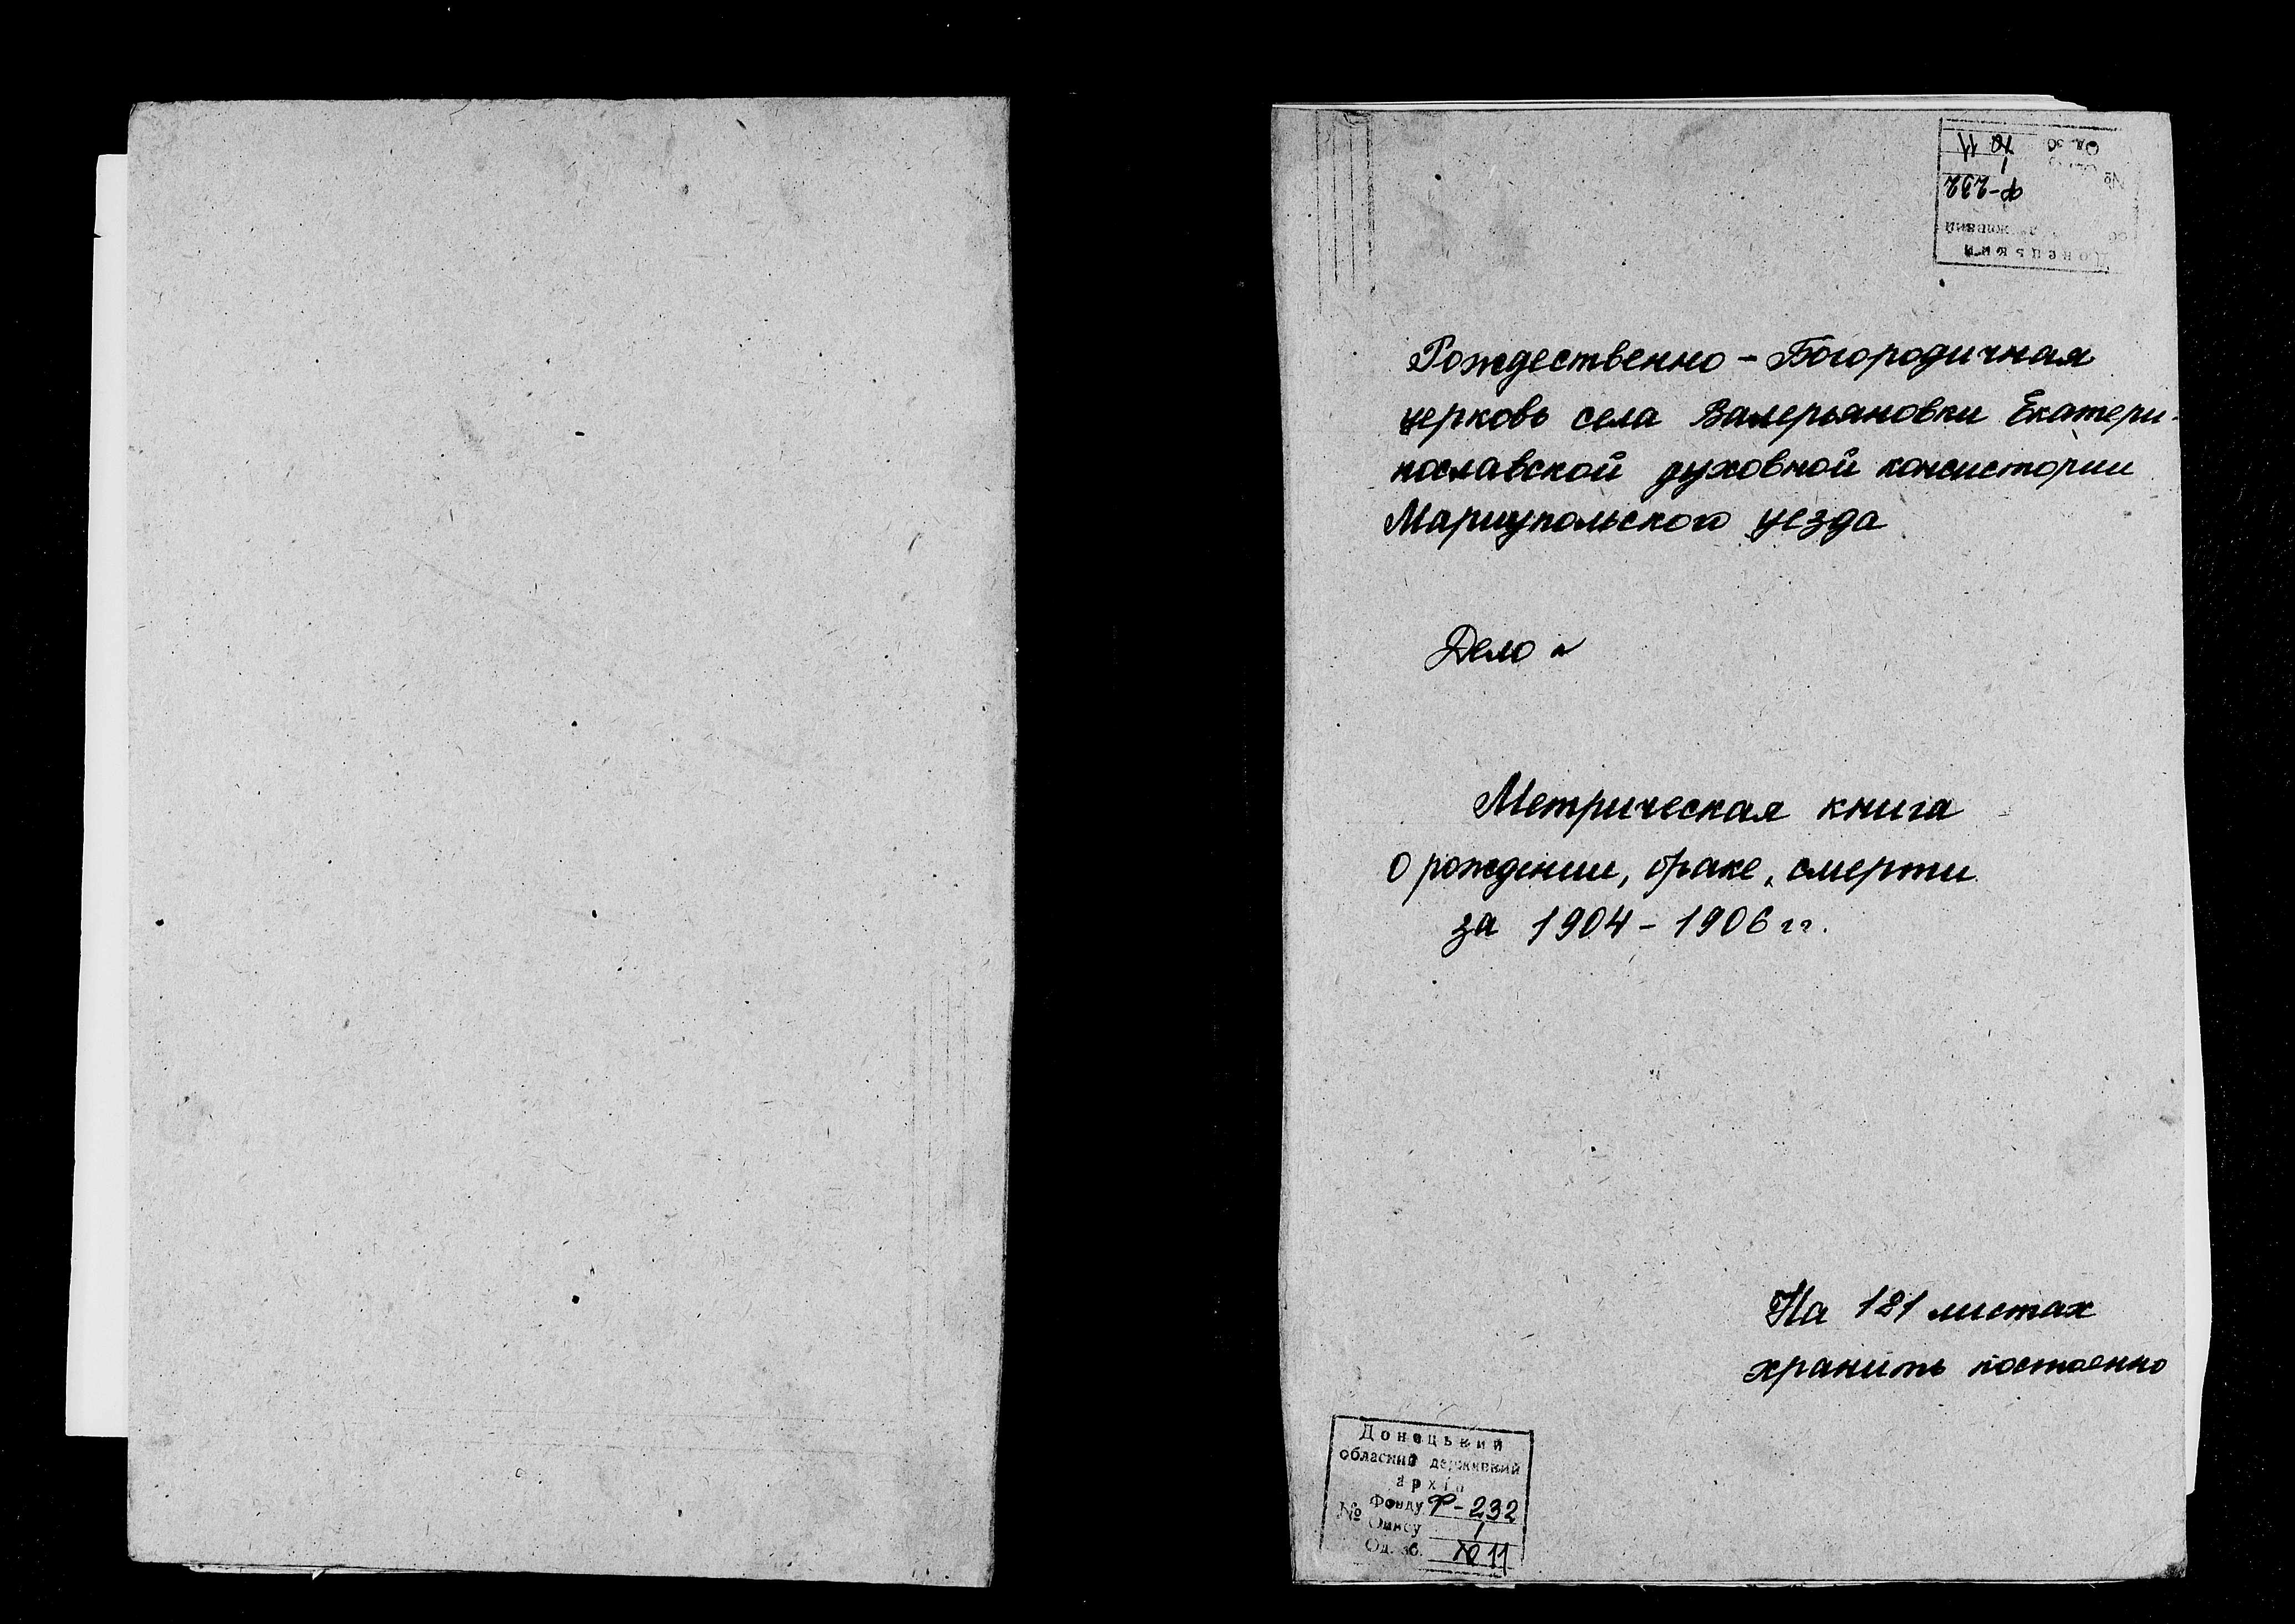 Рождественно-Богородичная
церковь села Валерьяновки Екатери-
нославской духовной консистории
Мариупольского уезда
Дело №
Метрическая книга
о рождении, браке, смерти
за 1904-1906 гг.
На 181 листах
хранить постоянно
Донецький
обласний державний
архів
№ Фонду Ф-232
Опису 1
Од. зб. 11
Донецький
Ф-232
1
11
Од. зб